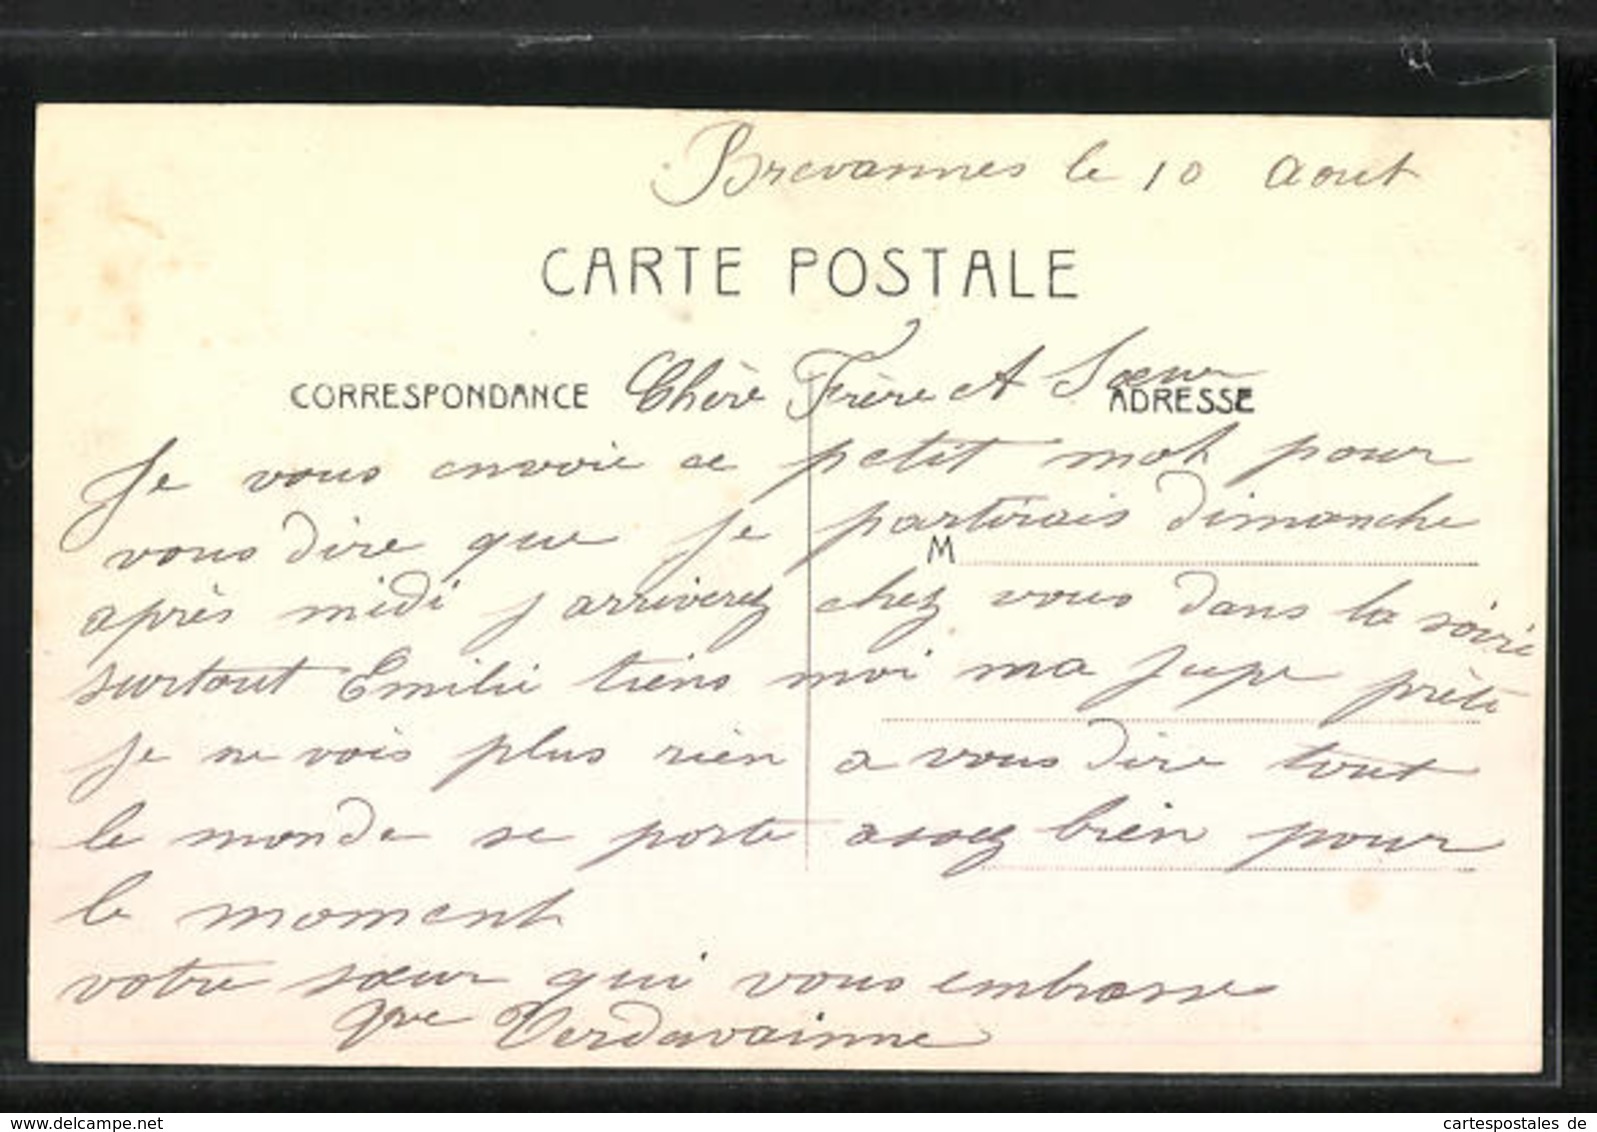 Brevannes le 10 Aout
CARTE POSTALE
CORRESPONDANCE
Chère Frère et Sœur
ADRESSE
Je vous envoie ce petit mot pour
vous dire que je partirais dimanche
M
après midi j arriverez chez vous dans la soiré
surtout Emilie tiens moi ma jupe prête
je ne vois plus rien a vous dire tout
le monde se porte assez bien pour
le moment
votre sœur qui vous embrasse
Verdavainne
www.delcampe.net
cartespostales de